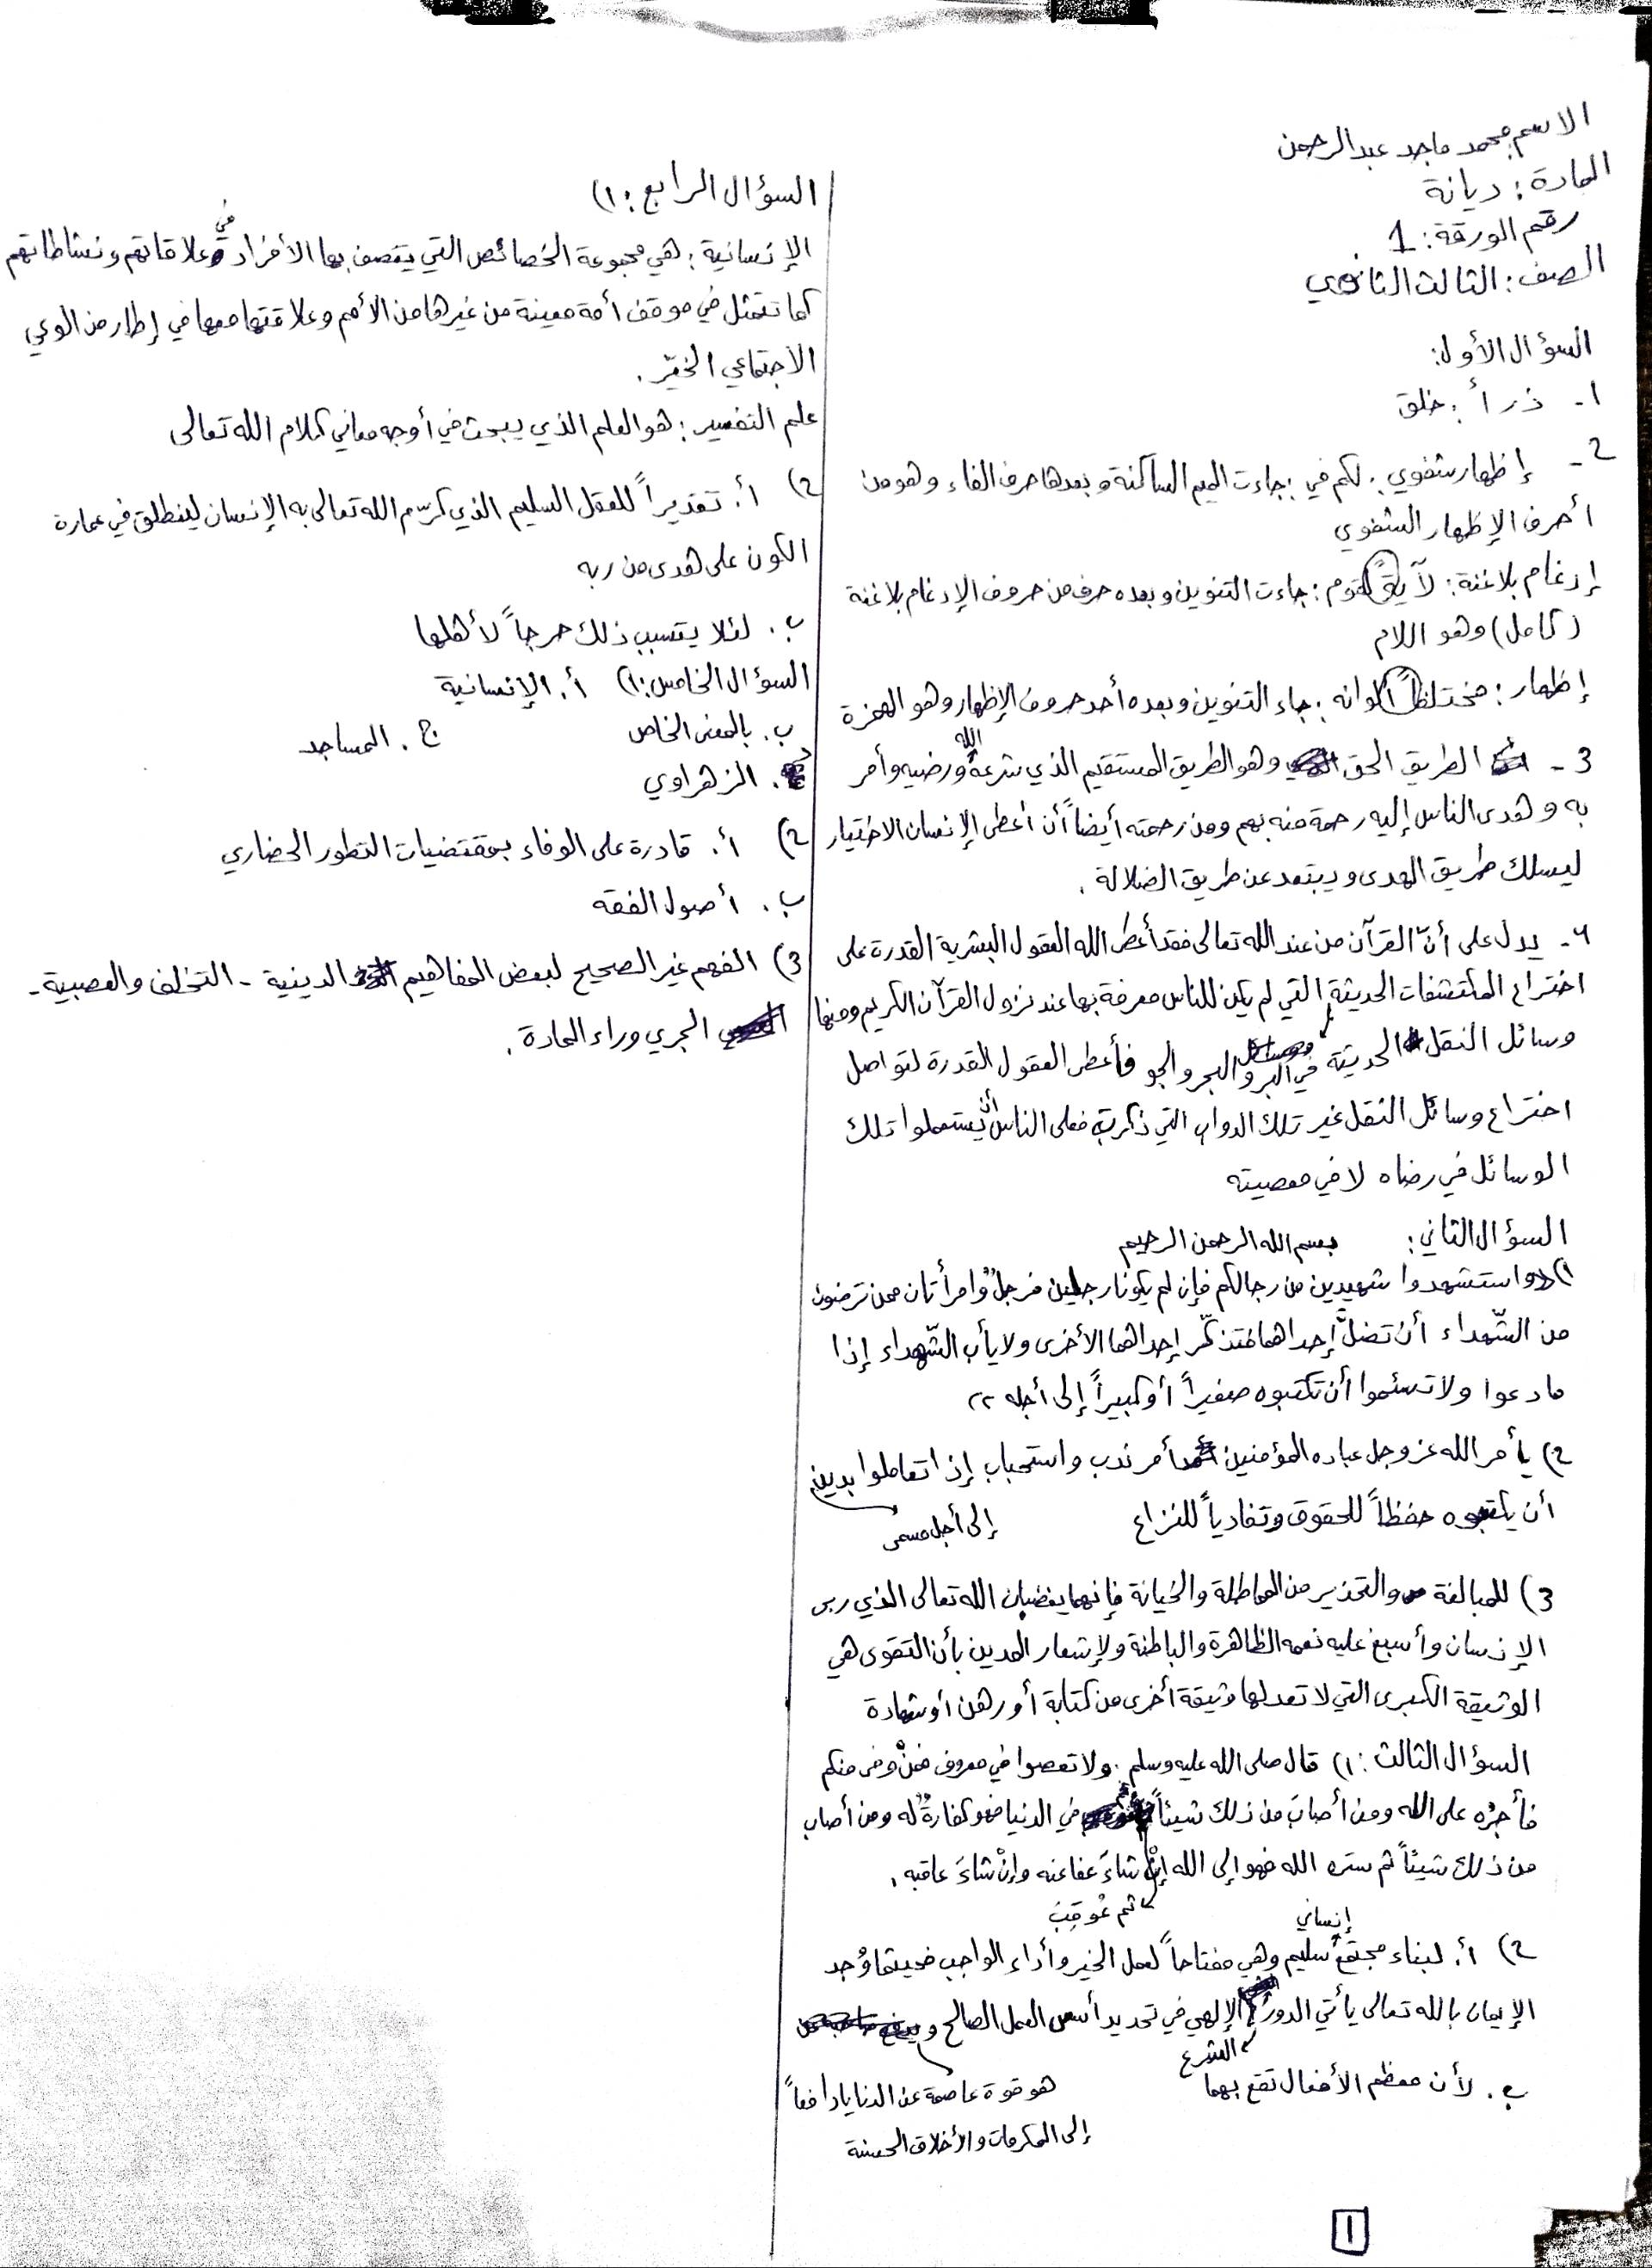 الاسم: محمد ماجد عبدالرحمن
المادة: ديانة
رقم الورقة: 1
الصف: الثالث الثانوي
السؤال الأول:
1- ذرأ: خلق
2- إظهار شفوي: لكم في: جاءت الميم الساكنة وبعدها حرف الفاء وهو من
أحرف الإظهار الشفوي
إدغام بلاغنة: لآيةً لقوم: جاءت التنوين وبعده حرف من حروف الإدغام بلاغنة
(كامل) وهو اللام
إظهار: مختلفاً ألوانه: جاء التنوين وبعده أحد حروف الإظهار وهو الهمزة
3- الطريق الحق وهو الطريق المستقيم الذي شرعه الله ورضيه وأمر
به وهدى الناس إليه رحمة منه بهم ومن رحمته أيضاً أن أعطى الإنسان الاختيار
ليسلك طريق الهدى ويبتعد عن طريق الضلالة.
4- يدل على أنّ القرآن من عند الله تعالى فقد أعطى الله العقول البشرية القدرة على
اختراع المكتشفات الحديثة التي لم يكن للناس معرفة بها عند نزول القرآن الكريم ومنها
وسائل النقل الحديثة في البر والبحر والجو فأعطى العقول القدرة لتواصل
اختراع وسائل النقل غير تلك الدواب التي ذكرت فعلى الناس أن يستعملوا تلك
الوسائل في رضاه لا في معصيته
السؤال الثاني: بسم الله الرحمن الرحيم
1) "واستشهدوا شهيدين من رجالكم فإن لم يكونا رجلين فرجلٌ وامرأتان ممن ترضون
من الشّهداء أن تضلَّ إحداهما فتذكّر إحداهما الأخرى ولا يأب الشّهداء إذا
ما دعوا ولا تسئموا أن تكتبوه صغيراً أو كبيراً إلى أجله"
2) يأمر الله عز وجل عباده المؤمنين أمر ندب واستحباب إذا تعاملوا بدين
إلى أجل مسمى
أن يكتبوه حفظاً للحقوق وتفادياً للنزاع
3) للمبالغة والتحذير من المماطلة والخيانة فإنهما يغضبان الله تعالى الذي ربى
الإنسان وأسبغ عليه نعمه الظاهرة والباطنة ولإشعار المدين بأن التقوى هي
الوثيقة الكبرى التي لا تعدلها وثيقة أخرى من كتابة أو رهن أو شهادة
السؤال الثالث: 1) قال صلى الله عليه وسلم: ولا تعصوا في معروف فمنْ وفى منكم
فأجرُه على الله ومن أصابَ من ذلك شيئاً ثم عُوقِبَ في الدنيا فهو كفارةٌ له ومن أصاب
من ذلك شيئاً ثم ستره الله فهو إلى الله إنْ شاءَ عفا عنه وإنْ شاءَ عاقبه.
2) أ. لبناء مجتمع إنساني سليم وهي مفتاحاً لعمل الخير وأداء الواجب فحيثما وُجد
الإيمان بالله تعالى يأتي الدور الشرع الإلهي في تحديد أسس العمل الصالح و
هو قوة عاصمة عن الدنايا دافعاً
إلى المكرمات والأخلاق الحسنة
ب. لأن معظم الأفعال تقع بهما
السؤال الرابع: 1)
الإنسانية: هي مجموعة الخصائص التي يتصف بها الأفراد في علاقاتهم ونشاطاتهم
كما تتمثل في موقف أمة معينة من غيرها من الأمم وعلاقتها معها في إطار من الوعي
الاجتماعي الخيّر.
علم التفسير: هو العلم الذي يبحث في أوجه معاني كلام الله تعالى
2) أ. تقديراً للعقل السليم الذي كرّم الله تعالى به الإنسان لينطلق في عمارة
الكون على هدى من ربه
ب. لئلا يتسبب ذلك حرجاً لأهلها
السؤال الخامس: 1) أ. الإنسانية
ب. بالمعنى الخاص ج. المساجد
د. الزهراوي
2) أ. قادرة على الوفاء بمقتضيات التطور الحضاري
ب. أصول الفقه
3) الفهم غير الصحيح لبعض المفاهيم الدينية - التخلف والعصبية -
الجري وراء المادة.
1